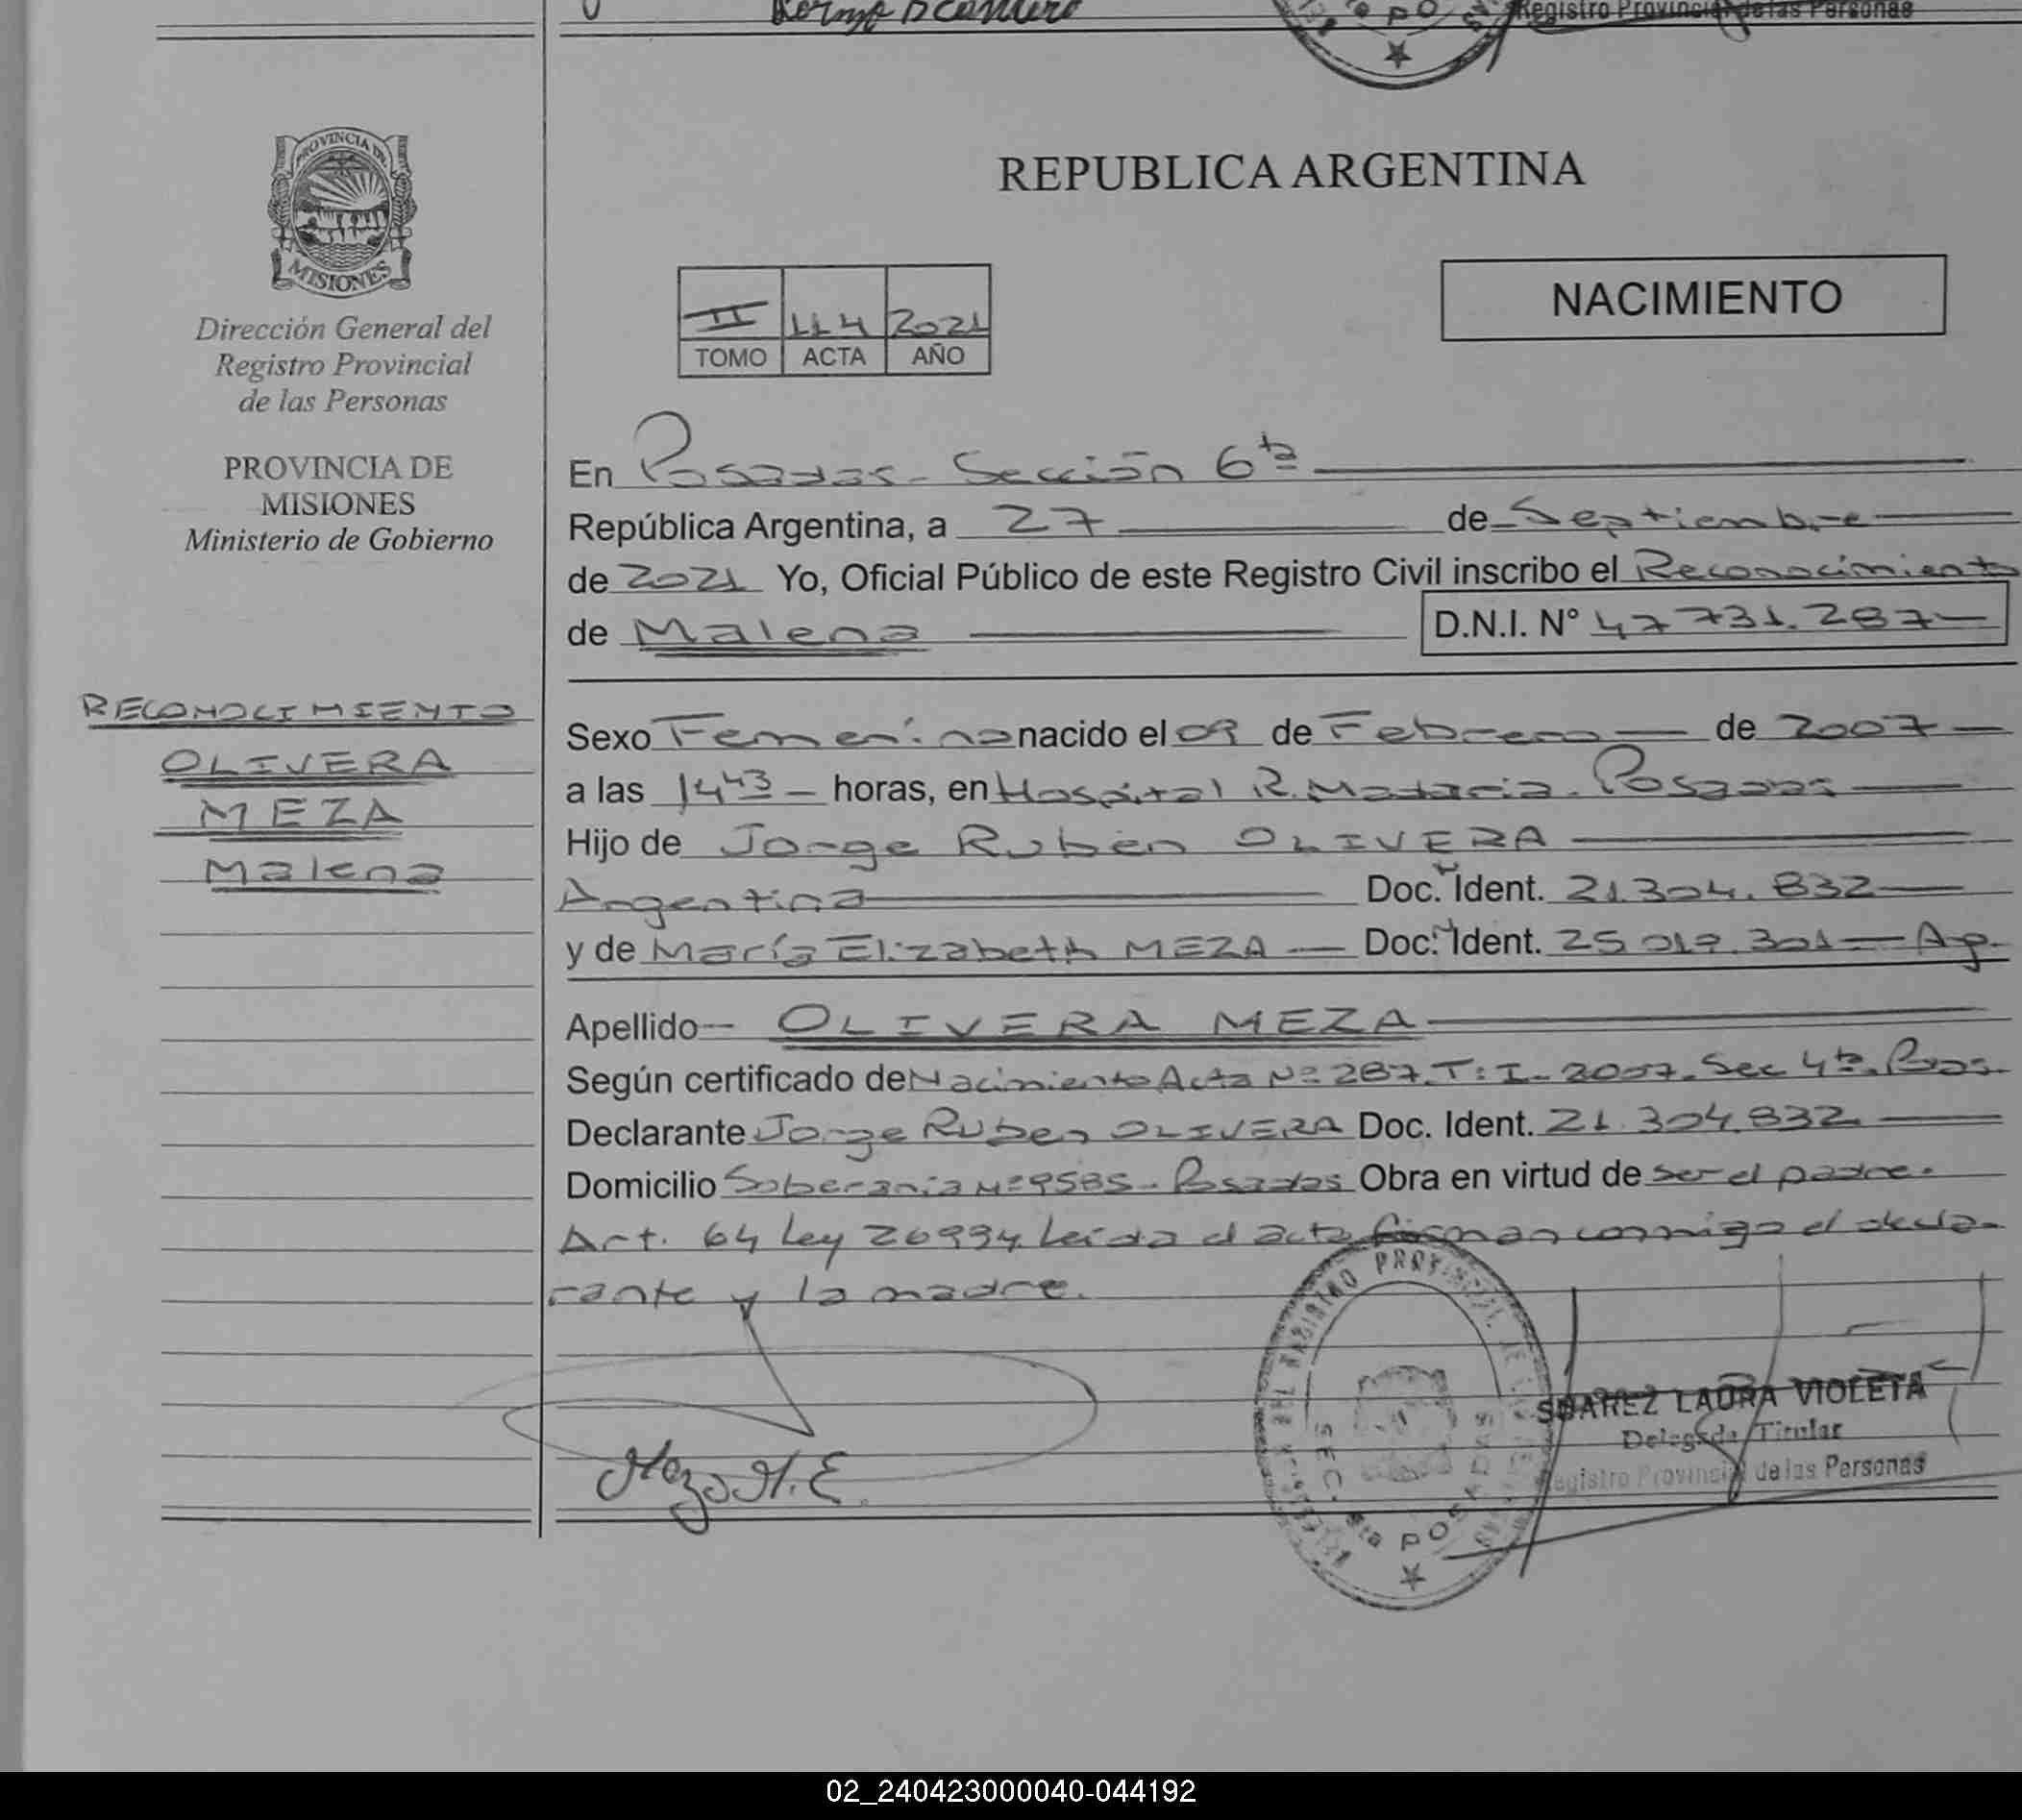 Registro Provincial de las Personas
REPUBLICA ARGENTINA
PROVINCIA DE
MISIONES
Dirección General del
Registro Provincial
de las Personas
PROVINCIA DE
MISIONES
Ministerio de Gobierno
II 114 2021
TOMO ACTA AÑO
NACIMIENTO
En Posadas - Sección 6ta
República Argentina, a 27 de Septiembre
de 2021 Yo, Oficial Público de este Registro Civil inscribo el Reconocimiento
de Malena D.N.I. N° 47 731. 287
RECONOCIMIENTO
OLIVERA
MEZA
Malena
Sexo Femenino nacido el 09 de Febrero de 2007
a las 14 43 horas, en Hospital R. Madariaga. Posadas
Hijo de Jorge Ruben OLIVERA
Argentina Doc. Ident. 21.304.832
y de María Elizabeth MEZA Doc. Ident. 25 019.301 Ag.
Apellido OLIVERA MEZA
Según certificado de Nacimiento Acta Nº 287. T: I - 2007. Sec 4ta. Pos.
Declarante Jorge Ruben OLIVERA Doc. Ident. 21.304.832.
Domicilio Soberanía Nº 9585 - Posadas Obra en virtud de ser el padre.
Art. 64 Ley 26994. Leída el acta firman conmigo el decla-
rante y la madre.
Meza M. E.
SUAREZ LAURA VIOLETA
Delegada Titular
Registro Provincial de las Personas
SEC. 6ta POSADAS
02_240423000040-044192